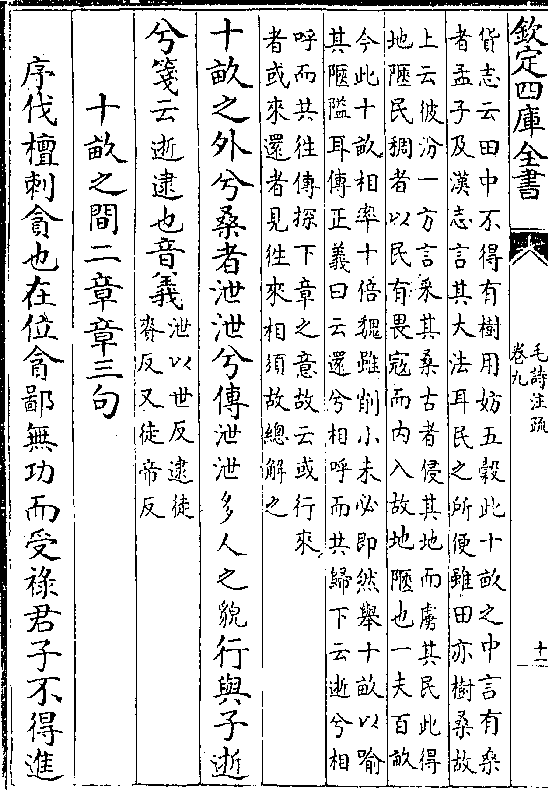 欽定四庫全書
毛詩注疏
卷九
十一
貨志云田中不得有樹用妨五穀此十畝之中言有桑
者孟子及漢志言其大法耳民之所便雖田亦樹桑故
上云彼汾一方言采其桑古者侵其地而虜其民此得
地陿民稠者以民有畏寇而内入故地陿也一夫百畝
今此十畝相率十倍魏雖削小未必即然舉十畝以喻
其陿隘耳傳正義曰云還兮相呼而共歸下云逝兮相
呼而共往傳探下章之意故云或行來
者或來還者見往來相須故總解之
十畝之外兮桑者泄泄兮傳泄泄多人之貌行與子逝
兮箋云逝逮也音義
泄以世反逮徒
賚反又徒帝反
十畝之間二章章三句
序伐檀刺貪也在位貪鄙無功而受祿君子不得進